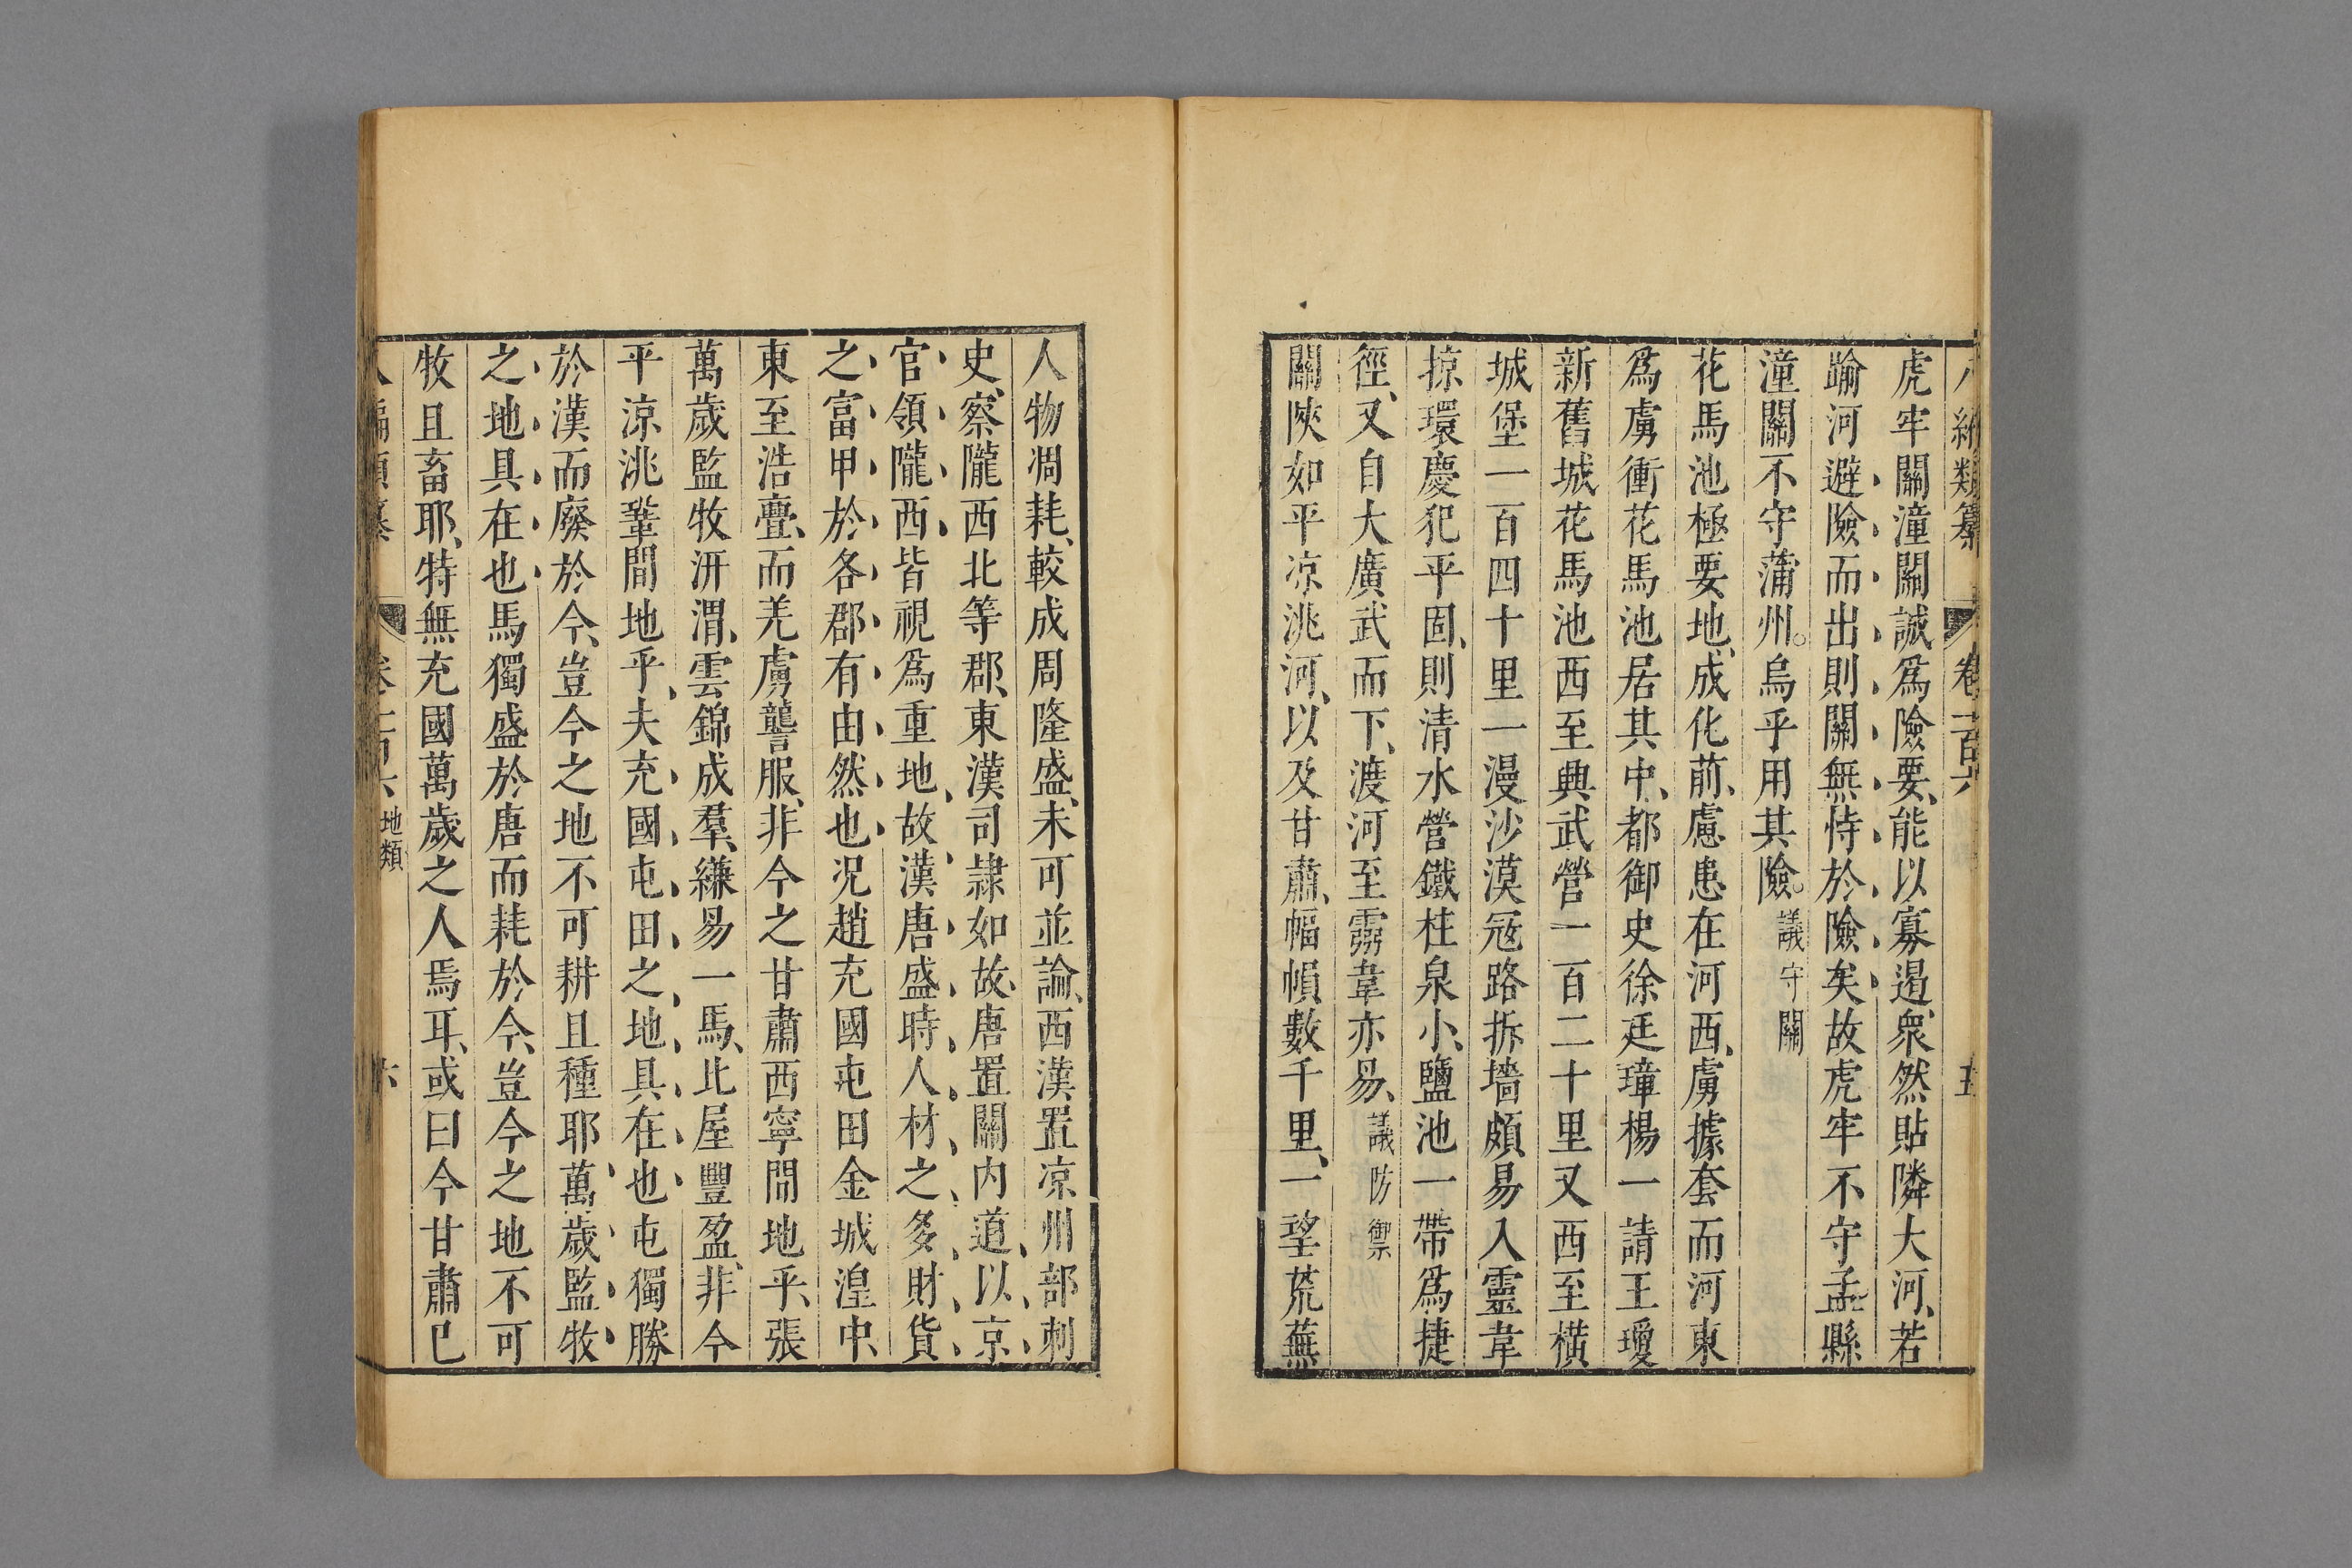 編類纂 卷一百六 五
虎牢關潼關誠爲險要、能以寡遏衆、然貼隣大河、若
踰河避險而出則關無恃於險矣故虎牢不守孟縣
潼關不守蒲州。烏乎用其險。議守關
花馬池極要地、成化前、慮患在河西、虜據套而河東
爲虜衝花馬池居其中、都御史徐廷璋楊一請王瓊
新舊城花馬池西至典武營一百二十里又西至橫
城堡一百四十里一漫沙漠寇路拆墻頗易入靈韋
掠環慶犯平固、則清水營鐵柱泉小、鹽池一帶爲捷
徑、又自大廣武而下、渡河至韋亦易、議防禦
關陝如平凉洮河、以及甘肅、幅幀數千里、一望荒蕪
人物凋耗、較成周隆盛、未可並論、西漢置凉州部刺
史、察隴西北等郡、東漢司隸如故、唐置關内道、以京
官領隴西皆視爲重地、故漢唐盛時人材之多財貨
之富甲於各郡有由然也况趙充國屯田金城湟中、
東至浩亹、而羌虜讋服、非今之甘肅西寧間地乎、張
萬歲監牧汧渭、雲錦成羣、縑易一馬、比屋豐盈、非今
平凉洮鞏間地乎、夫充國屯田之地具在也屯獨勝
於漢而廢於今、豈今之地不可耕且種耶萬歲監牧
之地具在也馬獨盛於唐而耗於今、豈今之地不可
牧且畜耶、特無充國萬歲之人焉耳、或曰今甘肅已
類纂 卷一百六 地類 六